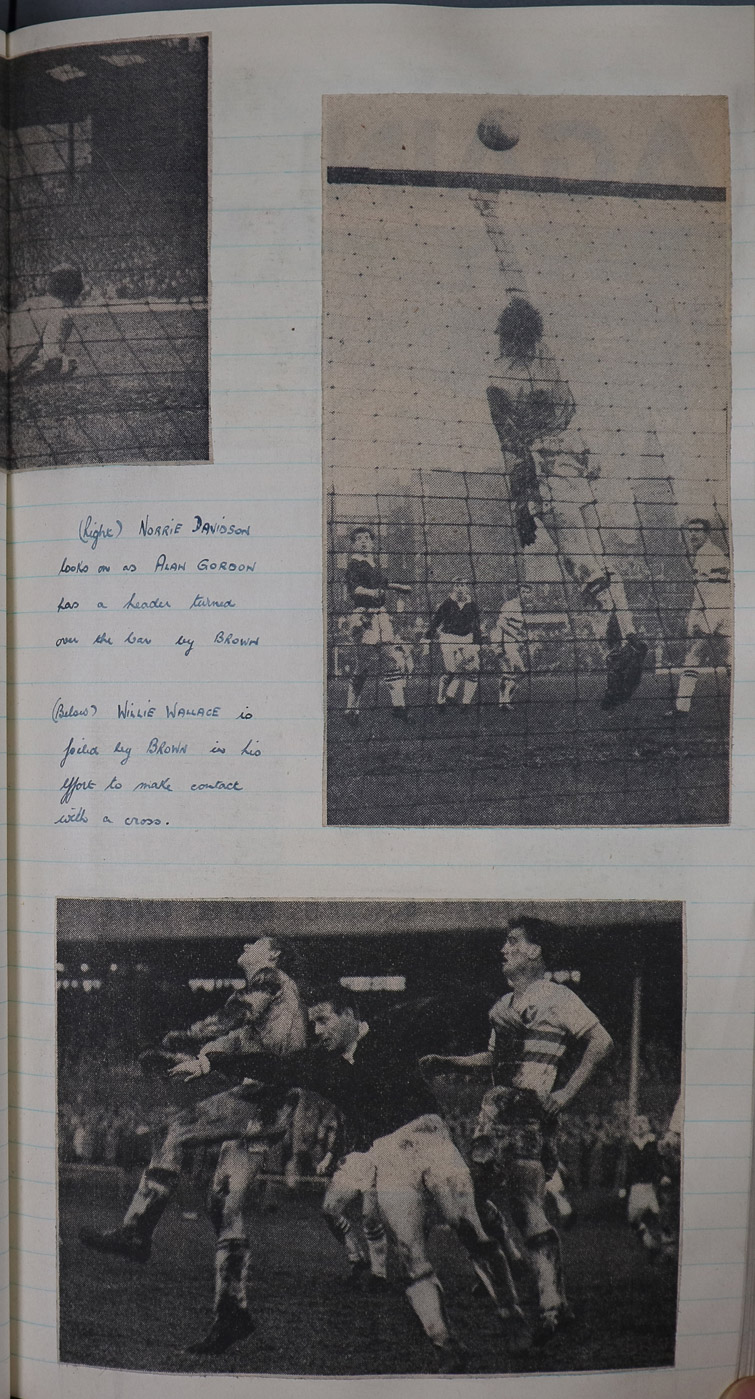 (Right) NORRIE DAVIDSON
looks on as ALAN GORDON
has a header turned
over the bar by BROWN
(Below) WILLIE WALLACE is
foiled by BROWN in his
effort to make contact
with a cross.